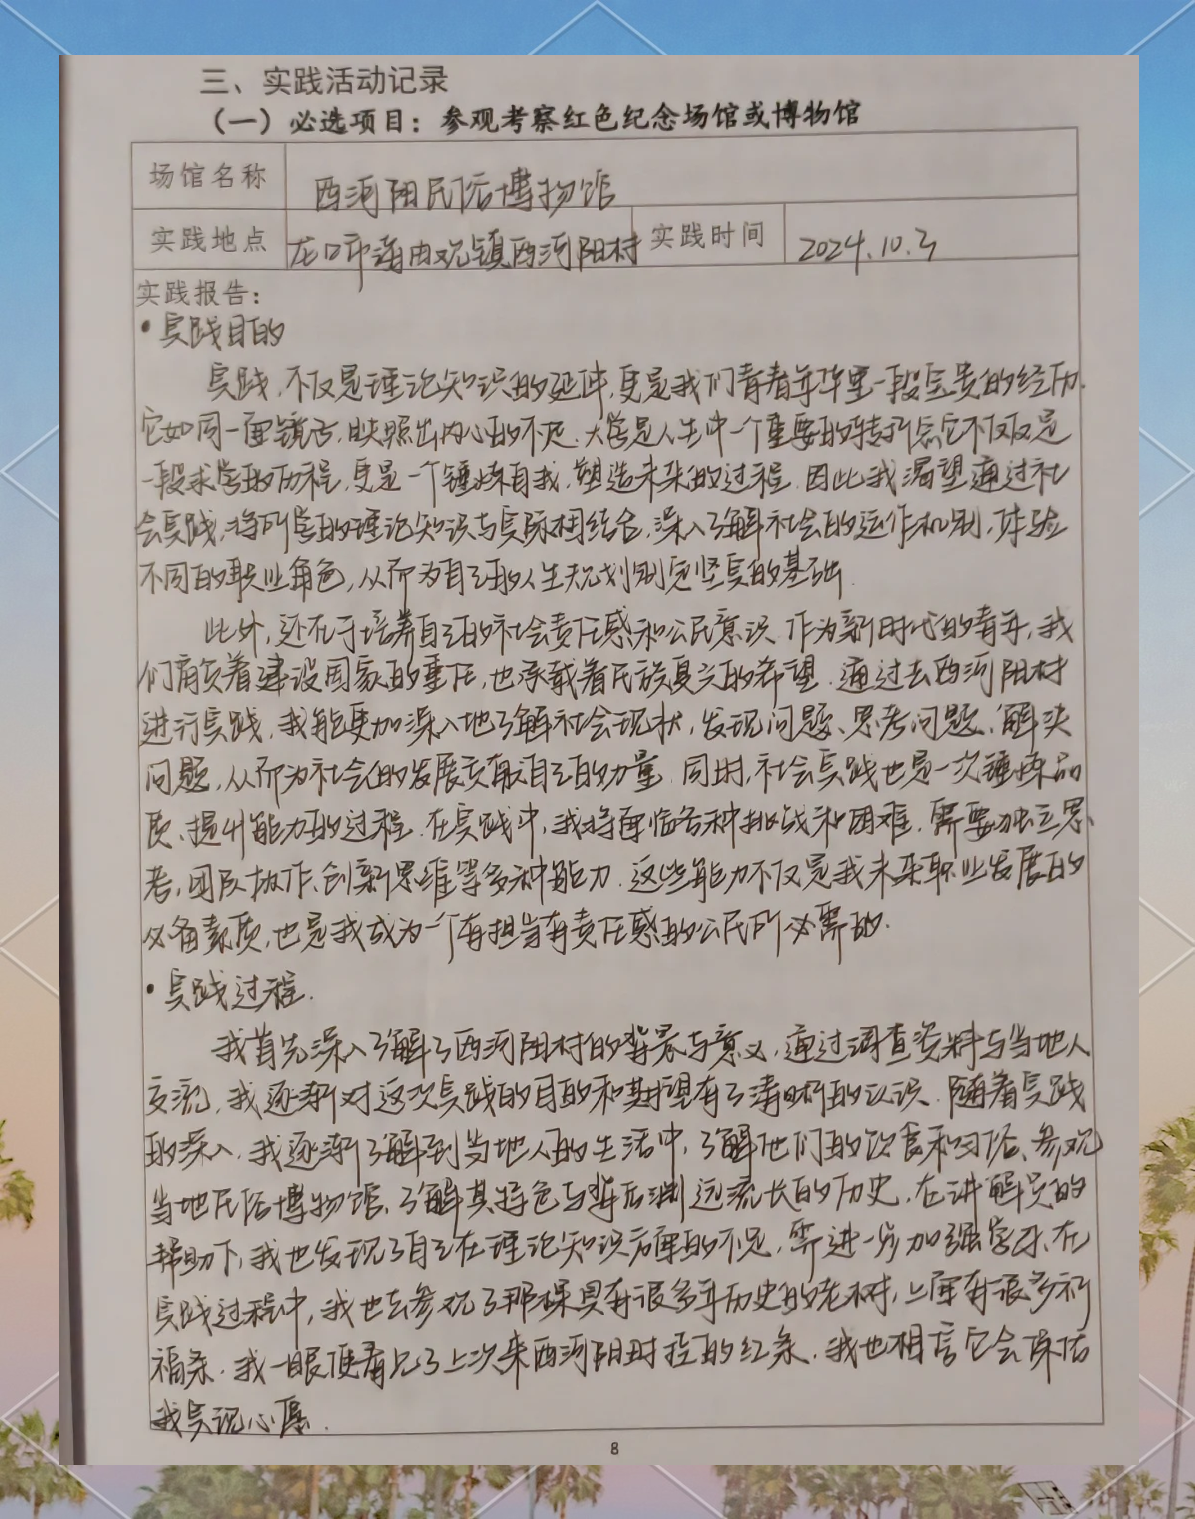 三、实践活动记录
（一）必选项目：参观考察红色纪念场馆或博物馆
场馆名称 西河阳民俗博物馆
实践地点 龙口市诸由观镇西河阳村 实践时间 2024.10.3
实践报告：
·实践目的
实践，不仅是理论知识的延伸，更是我们青春年华里一段宝贵的经历.
它如同一面镜子，映照出内心的不足.大学是人生中一个重要的转折点它不仅仅是
一段求学的历程，更是一个锤炼自我，塑造未来的过程.因此我渴望通过社
会实践，将所学的理论知识与实际相结合，深入了解社会的运作机制，体验
不同的职业角色，从而为自己的人生规划制定坚实的基础.
此外，还在于培养自己的社会责任感和公民意识.作为新时代的青年，我
们肩负着建设国家的重任，也承载着民族复兴的希望.通过去西河阳村
进行实践，我能更加深入地了解社会现状，发现问题、思考问题、解决
问题，从而为社会的发展贡献自己的力量.同时，社会实践也是一次锤炼品
质、提升能力的过程.在实践中，我将面临各种挑战和困难.需要独立思
考，团队协作、创新思维等多种能力.这些能力不仅是我未来职业发展的
必备素质，也是我成为一个有担当有责任感的公民所必需的.
·实践过程.
我首先深入了解了西河阳村的背景与意义，通过调查资料与当地人
交流，我逐渐对这次实践的目的和期望有了清晰的认识.随着实践
的深入，我逐渐了解到当地人的生活中，了解他们的饮食和习俗、参观
当地民俗博物馆，了解其特色与背后渊远流长的历史.在讲解员的
帮助下，我也发现了自己在理论知识方面的不足，需进一步加强学习，在
实践过程中，我也去参观了那棵具有很多年历史的老树，上面有很多祈
福条.我一眼便看见了上次来西河阳时挂的红条.我也相信它会保佑
我实现心愿.
8